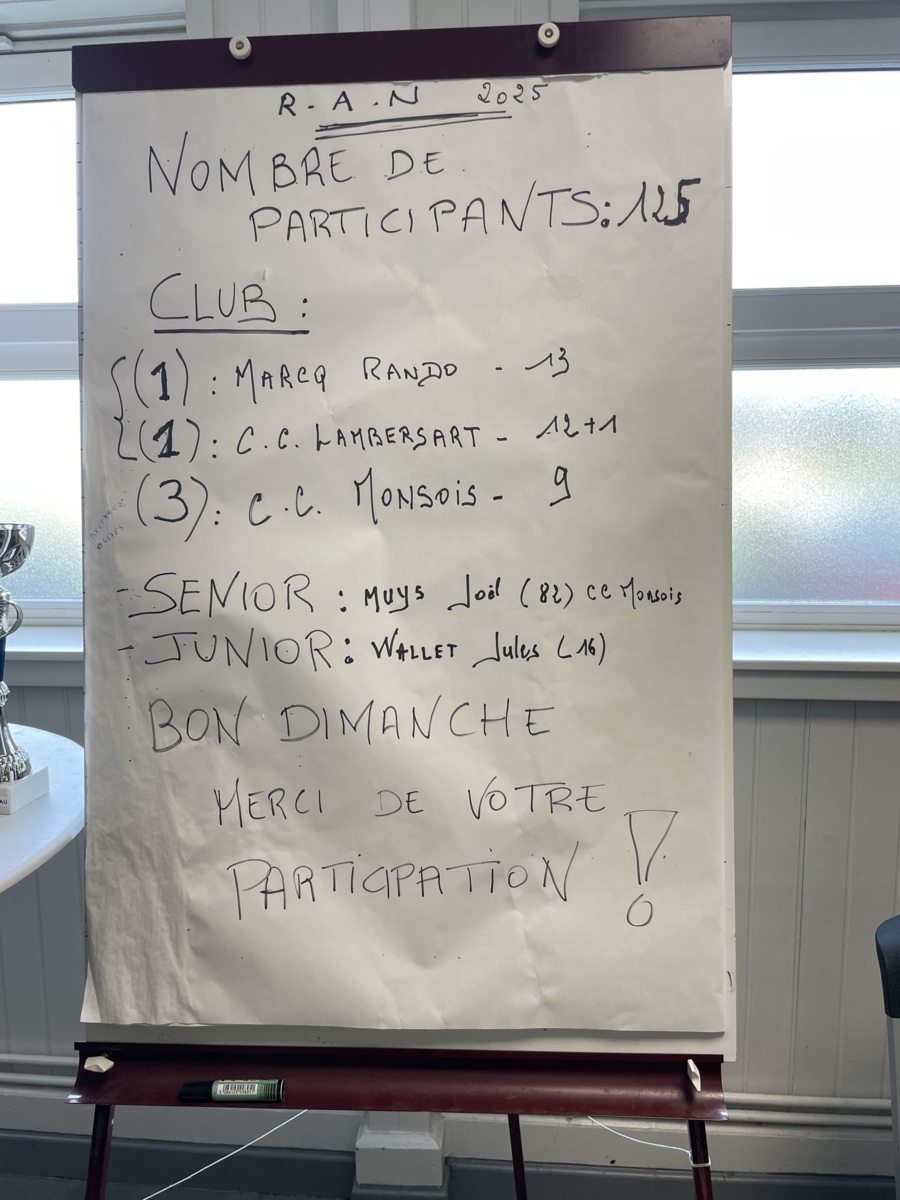 R. A. N 2025
NOMBRE DE
PARTICIPANTS: 125
CLUB :
(1) : MARCQ RANDO - 13
(1) : C.C. LAMBERSART - 12+1
(3) : C.C. MONSOIS - 9
- SENIOR : MUYS Joël (82) CC Monsois
- JUNIOR : WALLET Jules (16)
BON DIMANCHE
MERCI DE VOTRE
PARTICIPATION !